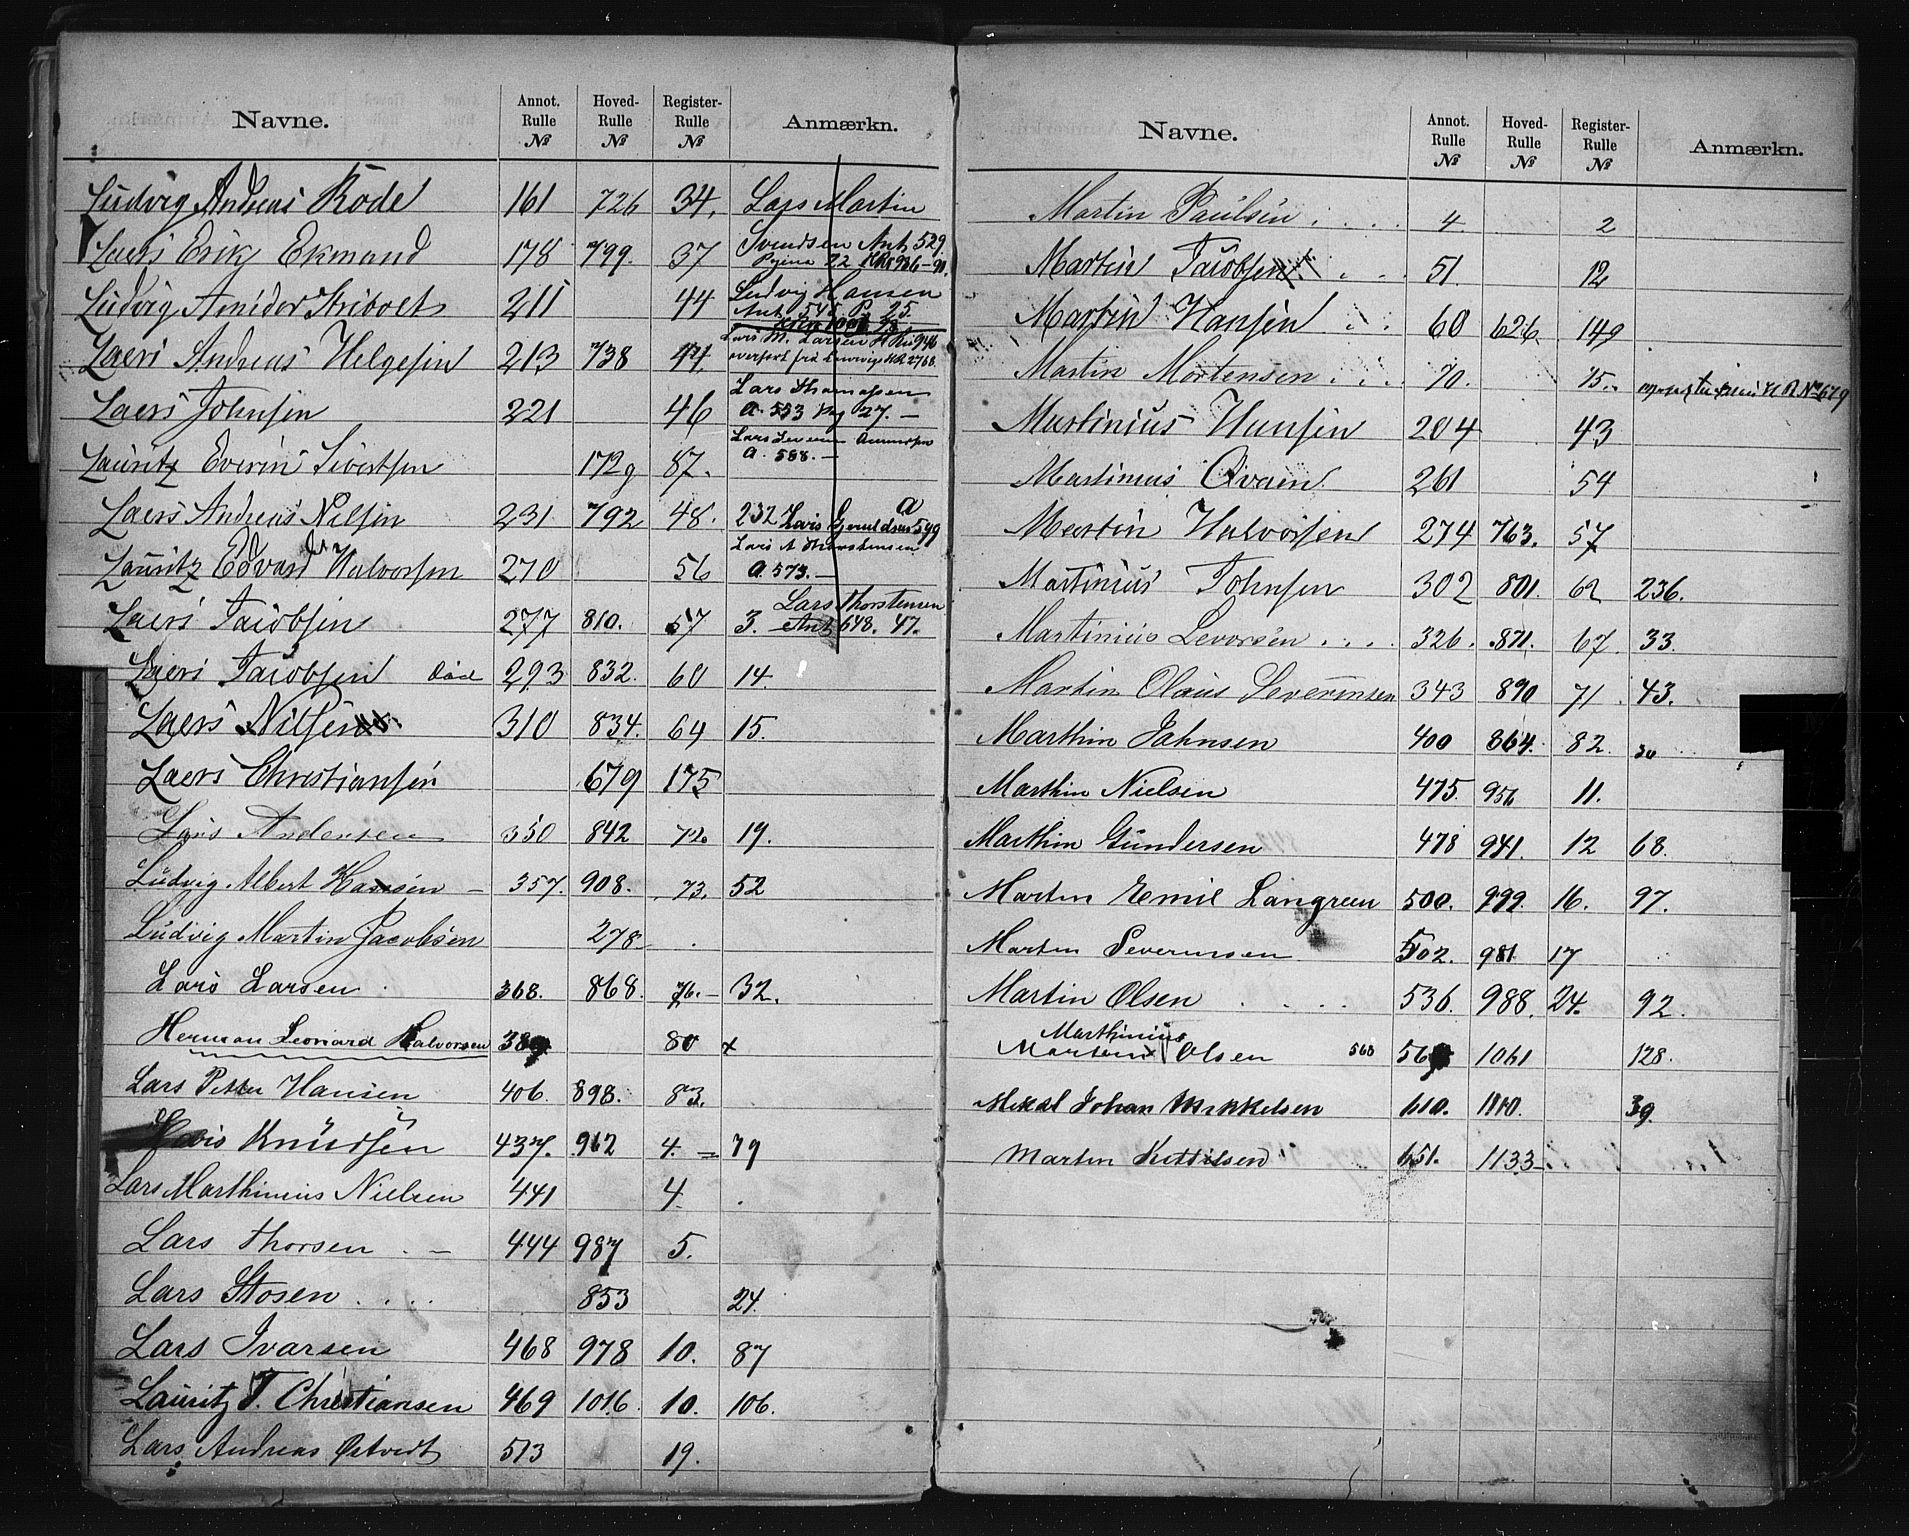 Navne. Annot. Rulle № Hoved- Rulle № Register- Rulle № Anmærkn.
Ludvig Andreas Rode 161 726 34. Lars Martin
Laers Erik Ekmand 178 799. 37 Svendsen Ant 529.
Pagina 22 HR 936-90.
Ludvig Amidor Striboet 211 44 Ludvig Hansen
Ant 545 P. 25.
Laers Andreas Helgesen 213 738 44. Lars M. Larsen H Ru 946
overført fra Larvigs HR 2768.
Laers Johnsen 221 46 Lars Thomassen
a. 553 Pag 27. —
Lauritz Everin Sivertsen 172g 87. Lars Severin Amundsen
a. 588. —
Laers Andreas Nilsen 231 792 48. 232 Lars Gjeruldsen 599 a
Lauritz Edvard Halvorsen 270 56 Lars A Thorstensen
a. 573. —
Laers Jacobsen 277 810. 57 3. Lars Thorstensen
Ant 648. 47.
Laers Jacobsen død 293 832. 60 14.
Laers Nilsen 310 834. 64 15.
Laers Christiansen 679 175
Lars Andersen 350 842 72. 19.
Ludvig Albert Hansen — 357. 908. 73. 52
Ludvig Martin Jacobsen 278
Lars Larsen 368. 868. 76. — 32.
Herman Leonard Halvorsen 389 80 x
Lars Petter Hansen 406. 898. 83.
Lars Knudsen 437. 962 4. — 79
Lars Marthinius Nielsen 441 4.
Lars Thorsen . — 444 987 5.
Lars Stosen . . . . 853 24.
Lars Ivarsen 468 978 10. 87
Lauritz T. Christiansen 469 1016. 10. 106.
Lars Andreas Østvedt 513 19.
Navne. Annot. Rulle № Hoved- Rulle № Register- Rulle № Anmærkn.
Martin Paulsen . . . . 4 2
Martin Jacobsen . . . 51. 12
Martin Hansen . . 60 626 149
Martin Mortensen . . . 70. 15. HR No 679
Martinius Hansen 204 43
Martinius Qvain 261 54
Martin Halvorsen 274 763. 57
Martinius Johnsen 302 801. 62 236.
Martinius Levorsen . . . . 326. 871. 67. 33.
Martin Olaus Severinsen 343 890 71 43.
Marthin Jahnsen 400 864. 82. 30
Marthin Nielsen 475. 956 11.
Marthin Gundersen 478 941. 12 68.
Martin Emil Langreen 500. 999. 16. 97.
Martin Severinsen 502. 981 17
Martin Olsen . . . . 536. 988. 24. 92.
Marthinius
Martin Olsen 560 560 1061 128.
Mikal Johan Mikkelsen 610. 1110. 39.
Martin Kittilsen 651. 1133